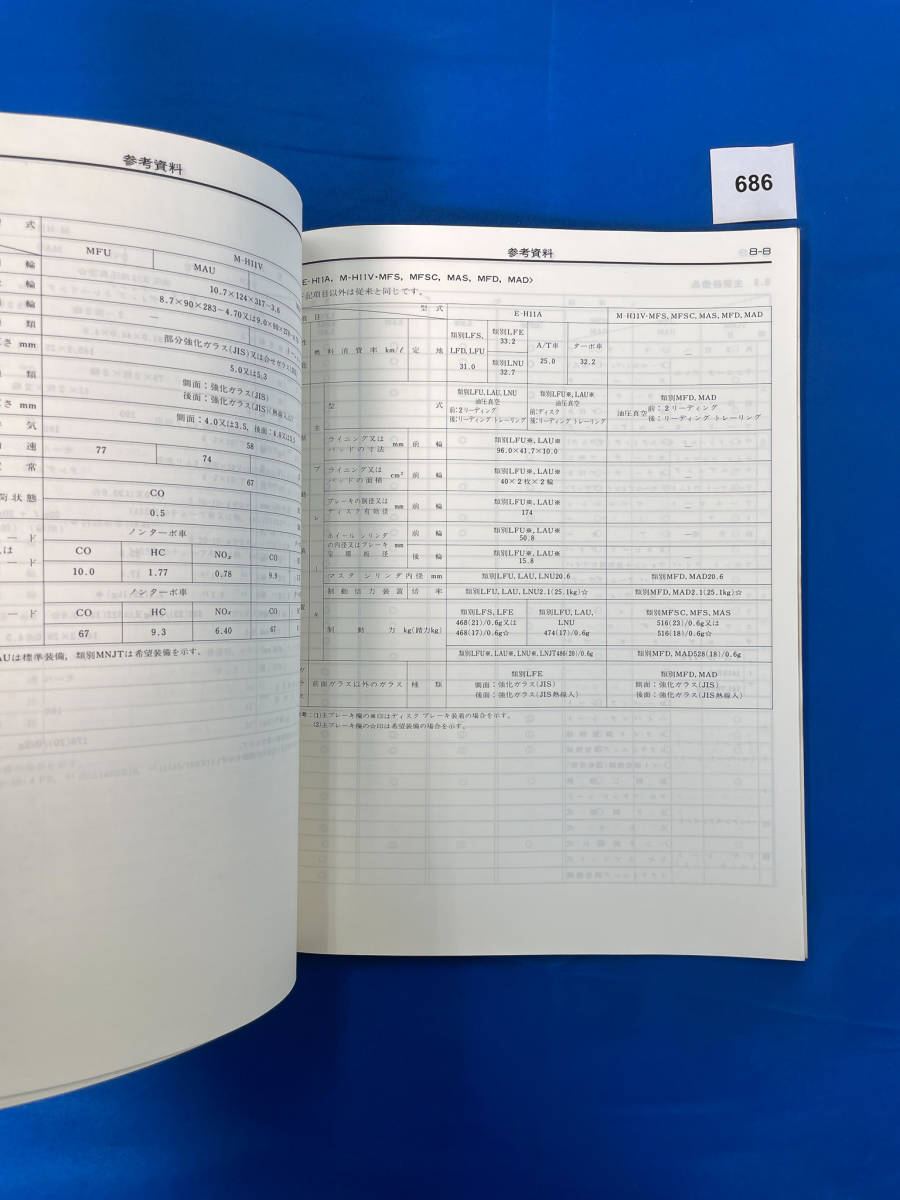 686
参考資料
式
MFU
M-H11V
MAU
輪
10.7×124×317-3.6
輪
輪
8.7×90×283-4.70又は9.0×90×
類
—
部分強化ガラス(JIS)又は合せガラス
さ mm
5.0又は5.3
側面：強化ガラス(JIS)
類
後面：強化ガラス(JIS)(熱線入)
さ mm
側面：4.0又は3.5, 後面：
気
58
速
77
74
常
67
状態
CO
0.5
ノンターボ車
ード
CO
HC
NOx
CO
は
ード
10.0
1.77
0.78
9.9
ノンターボ車
ード
CO
HC
NOx
CO
67
9.3
6.40
67
AUは標準装備, 類別MNJTは希望装備を示す。
参考資料
8-8
E-H11A, M-H11V・MFS, MFSC, MAS, MFD, MAD>
記項目以外は従来と同じです。
項目
型 式
E-H11A
M-H11V-MFS, MFSC, MAS, MFD, MAD
燃 料 消 費 率 km/ℓ 定 地
類別LFS,
LFD, LFU
31.0
類別LFE
33.2
類別LNU
32.7
A/T車
25.0
ターボ車
32.2
—
主
型 式
類別LFU, LAU, LNU
油圧真空
前：2リーディング
後：リーディング トレーリング
類別LFU※, LAU※
油圧真空
前：ディスク
後：リーディング トレーリング
類別MFD, MAD
油圧真空 前：2リーディング
後：リーディング トレーリング
ライニング又は
パッドの寸法 mm 前 輪
類別LFU※, LAU※
96.0×41.7×10.0
—
ブ
ライニング又は
パッドの面積 cm² 前 輪
類別LFU※, LAU※
40×2枚×2輪
—
レ
ブレーキの胴径又は
ディスク有効径 mm 前 輪
類別LFU※, LAU※
174
—
ホイール シリンダ
の内径又はブレーキ mm
室 膜 板 径
前 輪
類別LFU※, LAU※
50.8
—
後 輪
類別LFU※, LAU※
15.8
—
ー
マスタ シリンダ内径 mm
類別LFU, LAU, LNU20.6
類別MFD, MAD20.6
制動倍力装置倍率
類別LFU, LAU, LNU2.1(25.1kg)☆
類別MFD, MAD2.1(25.1kg)☆
キ
制 動 力 kg(踏力kg)
類別LFS, LFE
468(21)/0.6g又は
468(17)/0.6g☆
類別LFU, LAU,
LNU
474(17)/0.6g
類別MFSC, MFS, MAS
516(23)/0.6g又は
516(18)/0.6g☆
類別LFU※, LAU※, LNU※, LNJT486(20)/0.6g
類別MFD, MAD528(18)/0.6g
前面ガラス以外のガラス 種 類
類別LFE
側面：強化ガラス(JIS)
後面：強化ガラス(JIS熱線入)
類別MFD, MAD
側面：強化ガラス(JIS)
後面：強化ガラス(JIS熱線入)
考：(1)主ブレーキ欄の※印はディスク ブレーキ装着の場合を示す。
(2)主ブレーキ欄の☆印は希望装備の場合を示す。